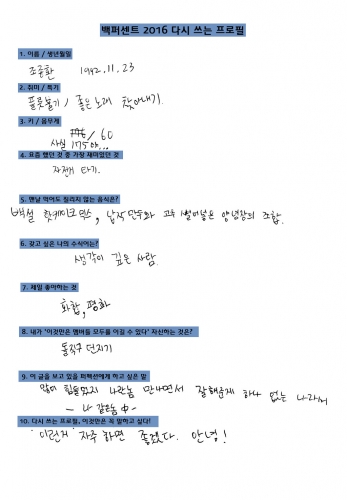 백퍼센트 2016 다시 쓰는 프로필
1. 이름 / 생년월일
조종환 1992.11.23
2. 취미 / 특기
플룻불기 / 좋은노래 찾아내기.
3. 키 / 몸무게
/ 60
사실 175야...
4. 요즘 했던 것 중 가장 재미있던 것
자전거 타기.
5. 맨날 먹어도 질리지 않는 음식은?
백설 핫케이크믹스, 납작만두와 고추 썰어넣은 양념장의 조합.
6. 갖고 싶은 나의 수식어는?
생각이 깊은 사람.
7. 제일 좋아하는 것
화합, 평화
8. 내가 '이것만은 멤버들 모두를 이길 수 있다' 자신하는 것은?
돌직구 던지기
9. 이 글을 보고 있을 퍼펙션에게 하고 싶은 말
많이 힘들었지 나란놈 만나면서 잘해준게 하나 없는 나라서
- 나 같은놈 中 -
10. 다시 쓰는 프로필, 이것만은 꼭 말하고 싶다!
이런거 자주 하면 좋겠다. 안녕!